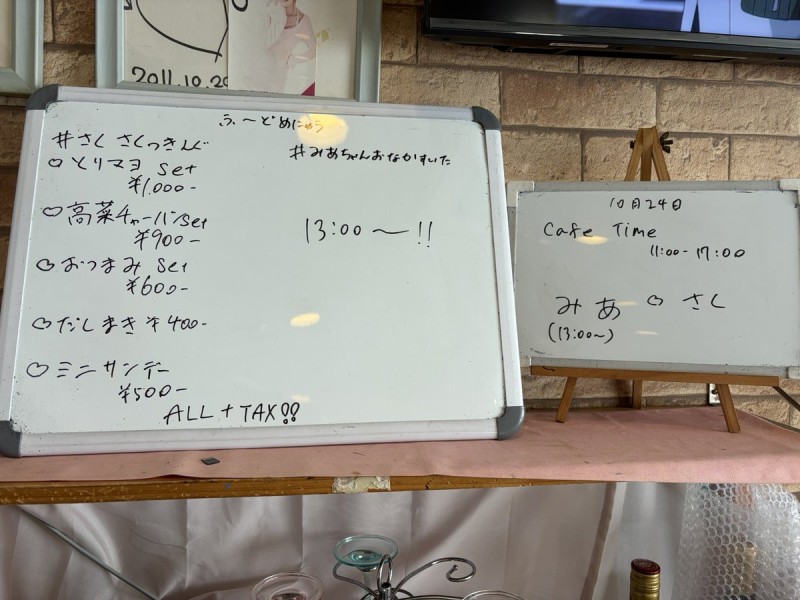 2011.10.20
ふ〜どめにゅう
#さくさくっきんぐ
♡とりマヨ Set
¥1,000-
♡高菜チャーハンSet
¥900-
♡おつまみ Set
¥600-
♡だしまき ¥400-
♡ミニサンデー
¥500-
ALL + TAX!!
#みあちゃんおなかすいた
13:00 〜 !!
10月24日
Cafe Time
11:00-17:00
みあ ♡ さく
(13:00〜)